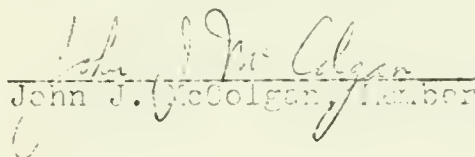 John J McColgan
John J. McColgan, Member